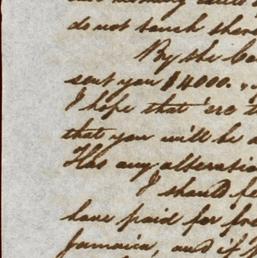 do not touch there
By the
sent you $4000.
I hope that 'ere
that you will be
Has any alteratio
I should fe
have paid for fre
Jamaica, and if